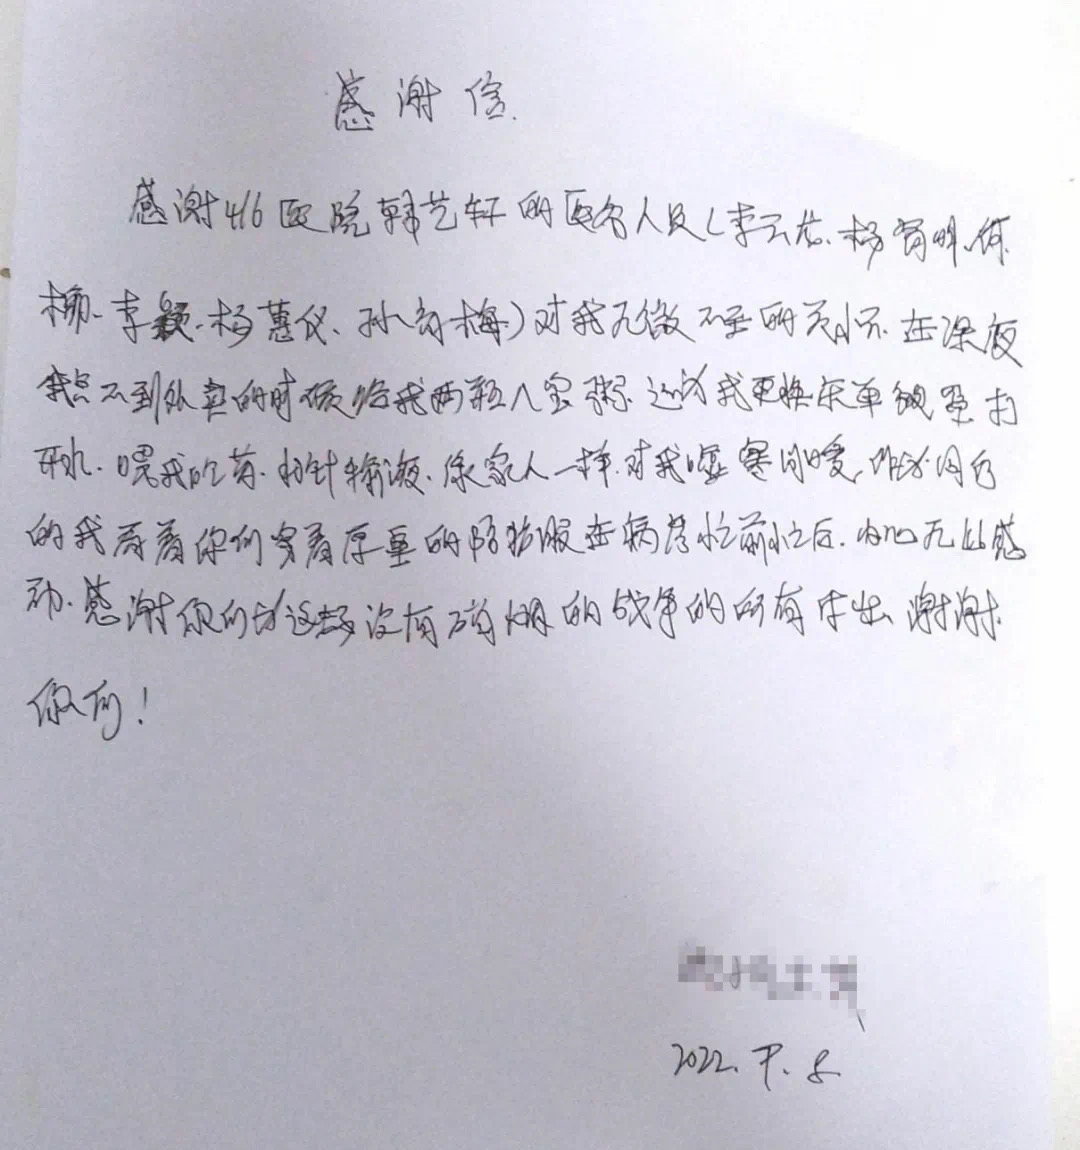 感谢信.
感谢416医院韩艺轩的医务人员（李云龙、杨 明、何
柳、李颖、杨蕙仪、孙 梅）对我无微不至的关怀.在深夜
我点不到外卖的时候给我两瓶八宝粥.还为我更换床单被罩打
开水.喂我吃药.扎针输液.像家人一样.对我嘘寒问暖,
的我看着你们穿着厚重的防护服在病房忙前忙后.内心无比感
动.感谢你们为这场没有硝烟的战争的所有付出 谢谢
你们!
2022.9.8.